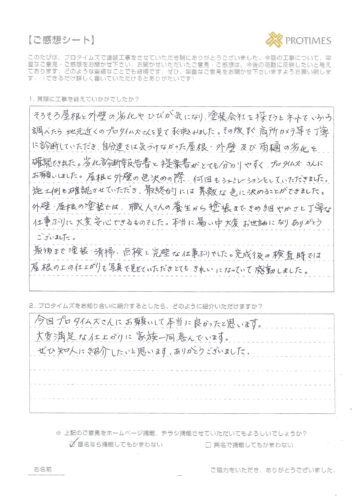 【ご感想シート】
PROTIMES
このたびは、プロタイムズで塗装工事をさせていただき誠にありがとうございました。今回の工事について、率
直なご意見・ご感想をお聞かせ下さい。お聞かせいただいたご意見・ご感想は、今後の活動に反映したいと考え
ております。どのような些細なことでも結構です。ぜひ、率直なご意見をお聞かせ下さいますようお願い致しま
す。
1. 実際に工事を終えていかがでしたか？
そろそろ屋根と外壁の劣化やひびが気になり、塗装会社を探そうとネットでいろいろ
調べたら地元近くのプロタイムズさんを見てお願いしました。その際すぐ高所カメラ等で丁寧
に診断していただき、自分達では気づかなかった屋根・外壁及び雨樋の劣化を
確認されました。劣化診断報告書と提案書がとても分かりやすく プロタイムズ さんに
お願いしました。屋根と外壁の色決めの際、何回もシュミレーションをしていただきました。
施工例も確認させていただき、最終的には素敵な色に決めることができました。
外壁・屋根の塗装では、職人さんの養生から塗装まできめ細やかさと丁寧な
仕事ぶりに大変安心できるものでした。本当に暑い中大変お世話になりありがとう
ございました。
最後まで塗装、清掃、点検と完璧な仕事ぶりでした。完成後の検査時では
屋根の上の仕上がりも写真で見せていただきとても きれいになっていて感動しました。
2. プロタイムズをお知り合いに紹介するとしたら、どのように紹介いただけますか？
今回プロタイムズさんにお願いして本当に良かったと思います。
大変満足な仕上がりに家族一同喜んでいます。
ぜひ知人にも紹介したいと思います。ありがとうございました。
※ 上記のご意見をホームページ掲載、チラシ掲載させていただいてもよろしいでしょうか？
☑ 匿名なら掲載してもかまわない □ 実名で掲載してもかまわない
お名前
ご協力をいただき、ありがとうございました。